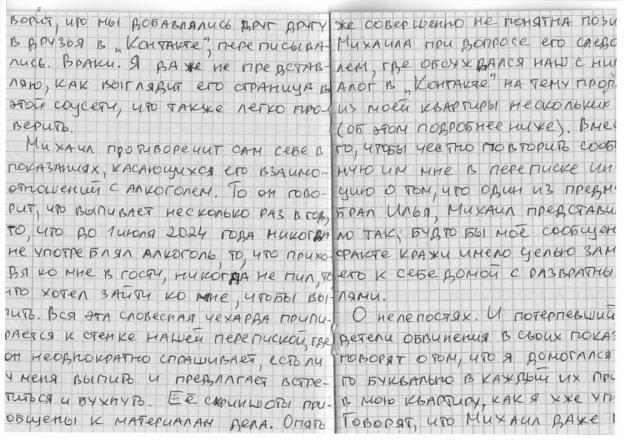 ворит, что мы добавлялись друг другу
в друзья в „Контакте", переписыва-
лись. Враки. Я даже не представ-
ляю, как выглядит его страница в
этой соцсети, что также легко про-
верить.
Михаил противоречит сам себе в
показаниях, касающихся его взаимо-
отношений с алкоголем. То он гово-
рит, что выпивает несколько раз в год,
то, что до 1 июля 2024 года никогда
не употреблял алкоголь, то, что прихо-
дя ко мне в гости, никогда не пил, то
что хотел зайти ко мне, чтобы вы-
пить. Вся эта словесная чехарда припи-
рается к стенке нашей перепиской, где
он неоднократно спрашивает, есть ли
у меня выпить и предлагает встре-
титься и бухнуть. Её скриншоты при-
общены к материалам дела. Опять
же совершенно не понятна пози
Михаила при допросе его следо
лем, где обсуждался наш с ни
алог в „Контакте" на тему проп
из моей квартиры нескольких
(об этом подробнее ниже). Вмес
то, чтобы честно повторить сооб
ную им мне в переписке ин
цию о том, что один из предм
брал Илья, Михаил представи
ло так, будто бы моё сообщен
факте кражи имело целью зам
его к себе домой с развратны
лями.
О нелепостях. И потерпевший
детели обвинения в своих показ
говорят о том, что я домогался
го буквально в каждый их при
в мою квартиру, как я уже уп
Говорят, что Михаил даже